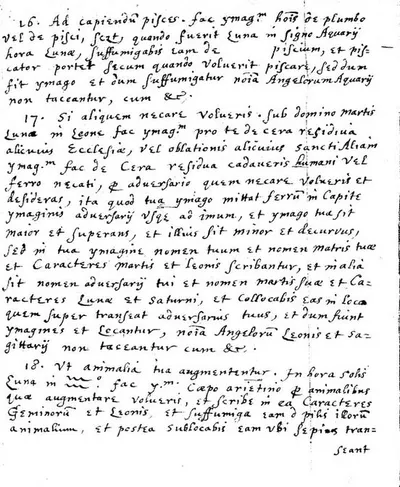 16. Ad capiendū pisces. fac ymag.m hoīs de plumbo
vel de pisci, sczt, quando fuerit Luna in signo Aquarij
hora Lunæ, suffumigabis eam de piscium, et pis-
cator portet secum quando voluerit piscare, sed dum
fit ymago et dum suffumigatur nōia Angelorum Aquarij
non taceantur, cum &c.
17. Si aliquem necare volueris. sub domino martis
Luna in Leone fac ymag.m pro te de cera residua
alicuius Ecclesiæ, vel oblationis alicuius sancti Aliam
ymag.m fac de Cera residua cadaveris humani vel
ferro necati, p adversario quem necare volueris et
desideras, ita quod tua ymago mittat ferrū in Capite
ymaginis adversarij usqe ad imum, et ymago tua sit
maior et superans, et illius sit minor et decurvus,
sed in tua ymagine nomen tuum et nomen matris tuæ
et Caracteres martis et leonis scribantur, et in alia
sit nomen adversarij tui et nomen matris suæ et Ca-
racteres Lunæ et Saturni, et Collocabis eas in loco
quem super transeat adversarius tuus, et dum fiunt
ymagines et Locantur, nōia Angelorū Leonis et sa-
gittarij non taceantur cum &c.
18. Vt animalia tua augmententur. In hora solis
Luna in fac y.m Capo arietino p animalibus
quæ augmentare volueris, et scribe in ea Caracteres
Geminorū et Leonis, et suffumiga eam d pilis illorū
animalium, et postea sublocabis eam ubi sepius tran-
seant